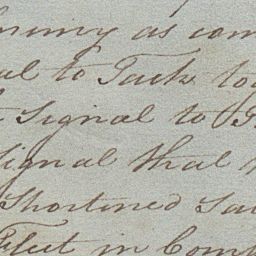 as com
al to Tack
Signal to
Signal that
Shortened Sa
Fleet in Comp